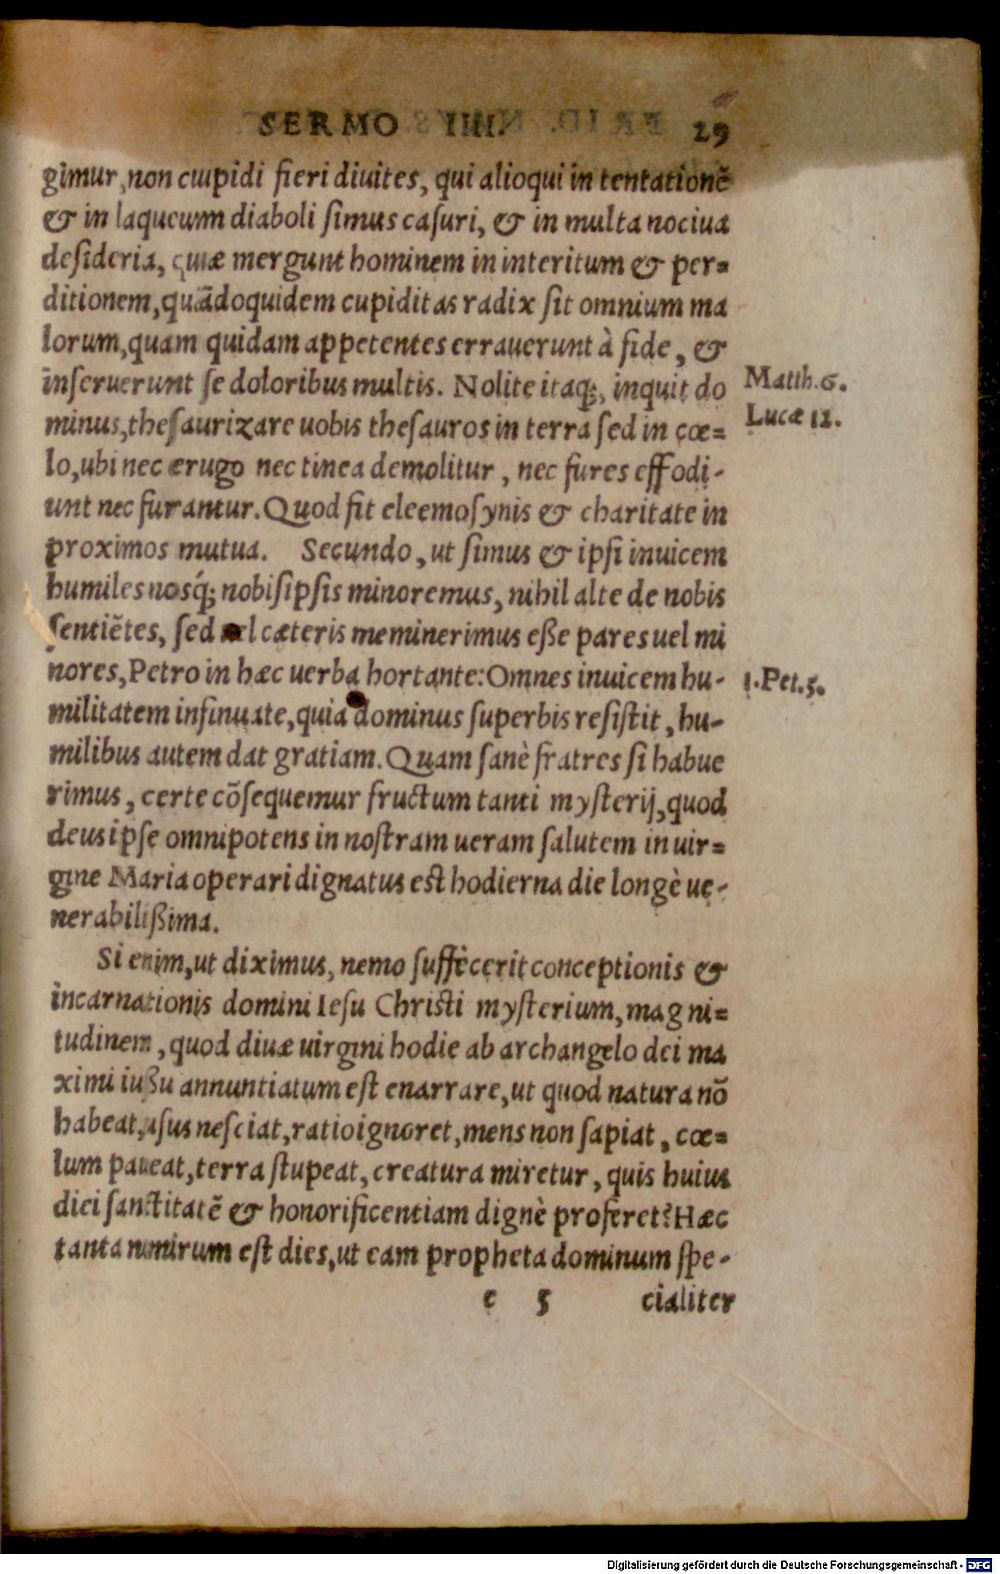 SERMO IIII. 29
gimur, non cupidi fieri diuites, qui alioqui in tentationē
& in laqueum diaboli ſimus caſuri, & in multa nociua
deſideria, quæ mergunt hominem in interitum & per⸗
ditionem, quādoquidem cupiditas radix ſit omnium ma
lorum, quam quidam appetentes errauerunt à fide, &
inſeruerunt ſe doloribus multis. Nolite itaq;, inquit do
Matth. 6.
minus, theſaurizare uobis theſauros in terra ſed in cœ⸗
Lucæ 12.
lo, ubi nec ærugo nec tinea demolitur, nec fures effodi-
unt nec furantur. Quod fit eleemoſynis & charitate in
proximos mutua. Secundo, ut ſimus & ipſi inuicem
humiles nosq́; nobiſipſis minoremus, nihil alte de nobis
ſentiētes, ſed uel cæteris meminerimus eße pares uel mi
nores, Petro in hæc uerba hortante: Omnes inuicem hu-
1. Pet. 5.
militatem inſinuate, quia dominus ſuperbis reſiſtit, hu-
milibus autem dat gratiam. Quam ſanè fratres ſi habue
rimus, certe cōſequemur fructum tanti myſterij, quod
deus ipſe omnipotens in noſtram ueram ſalutem in uir⸗
gine Maria operari dignatus eſt hodierna die longè ue-
nerabilißima.
Si enim, ut diximus, nemo ſuffecerit conceptionis &
incarnationis domini Ieſu Chriſti myſterium, magni⸗
tudinem, quod diuæ uirgini hodie ab archangelo dei ma
ximi iußu annuntiatum eſt enarrare, ut quod natura nō
habeat, uſus neſciat, ratio ignoret, mens non ſapiat, cœ⸗
lum paueat, terra ſtupeat, creatura miretur, quis huius
diei ſanctitatē & honorificentiam dignè proferet? Hæc
tanta nimirum eſt dies, ut eam propheta dominum ſpe-
e 5 cialiter
Digitalisierung gefördert durch die Deutsche Forschungsgemeinschaft - DFG